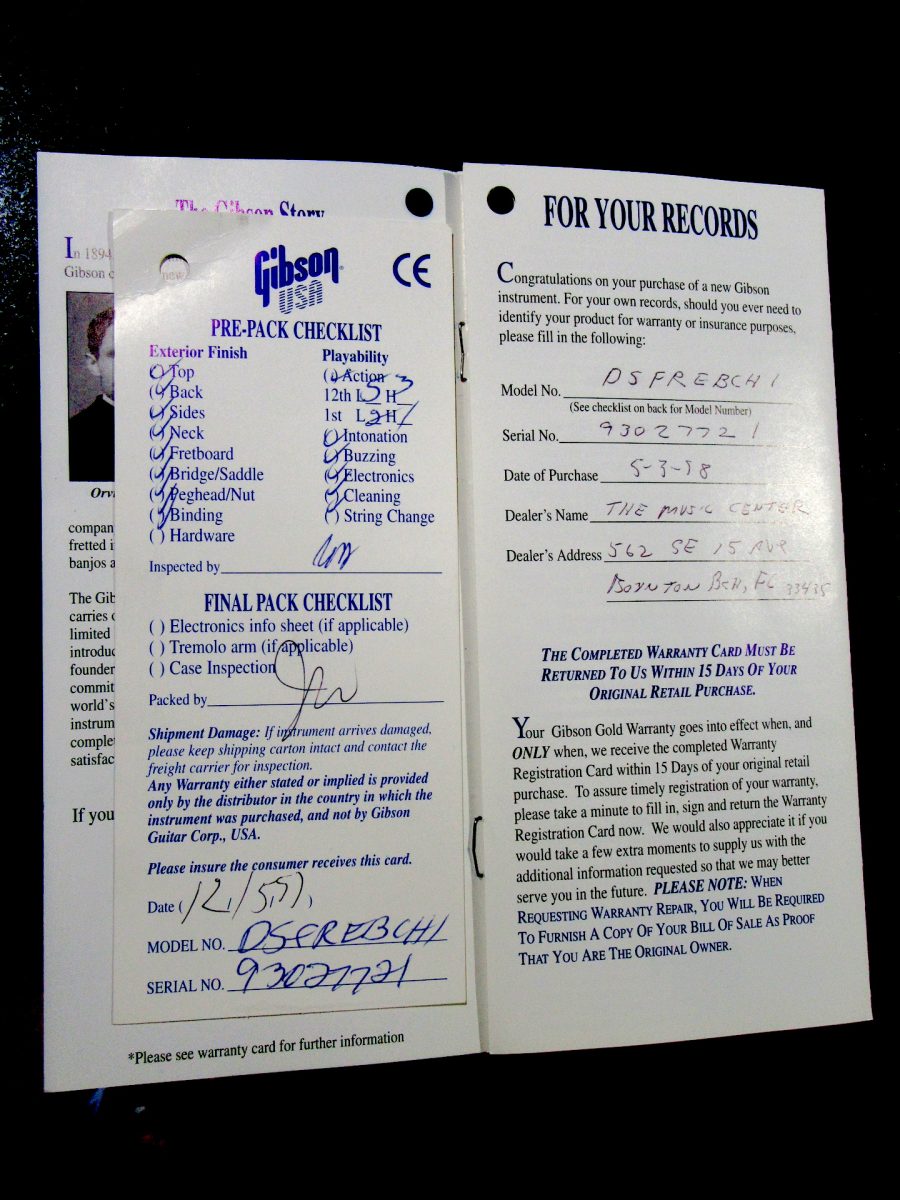 The Gibson Story
In 1894
Gibson
Orvi
compan
fretted i
banjos a
The Gib
carries
limited
introduc
founder
commit
world's
instrum
comple
satisfac
If you
new
Gibson
USA
CE
PRE-PACK CHECKLIST
Exterior Finish
( ) Top
( ) Back
( ) Sides
( ) Neck
( ) Fretboard
( ) Bridge/Saddle
( ) Peghead/Nut
( ) Binding
( ) Hardware
Playability
( ) Action
12th L 5 H 3
1st L 2 H 1
( ) Intonation
( ) Buzzing
( ) Electronics
( ) Cleaning
( ) String Change
Inspected by
FINAL PACK CHECKLIST
( ) Electronics info sheet (if applicable)
( ) Tremolo arm (if applicable)
( ) Case Inspection
Packed by
Shipment Damage: If instrument arrives damaged,
please keep shipping carton intact and contact the
freight carrier for inspection.
Any Warranty either stated or implied is provided
only by the distributor in the country in which the
instrument was purchased, and not by Gibson
Guitar Corp., USA.
Please insure the consumer receives this card.
Date ( )
MODEL NO. DSFREBCH1
SERIAL NO. 93027721
*Please see warranty card for further information
FOR YOUR RECORDS
Congratulations on your purchase of a new Gibson
instrument. For your own records, should you ever need to
identify your product for warranty or insurance purposes,
please fill in the following:
Model No. DSFREBCH1
(See checklist on back for Model Number)
Serial No. 93027721
Date of Purchase 5-3-98
Dealer's Name THE MUSIC CENTER
Dealer's Address 562 SE 15 AVE
BOYNTON BCH, FL 33435
THE COMPLETED WARRANTY CARD MUST BE
RETURNED TO US WITHIN 15 DAYS OF YOUR
ORIGINAL RETAIL PURCHASE.
Your Gibson Gold Warranty goes into effect when, and
ONLY when, we receive the completed Warranty
Registration Card within 15 Days of your original retail
purchase. To assure timely registration of your warranty,
please take a minute to fill in, sign and return the Warranty
Registration Card now. We would also appreciate it if you
would take a few extra moments to supply us with the
additional information requested so that we may better
serve you in the future. PLEASE NOTE: WHEN
REQUESTING WARRANTY REPAIR, YOU WILL BE REQUIRED
TO FURNISH A COPY OF YOUR BILL OF SALE AS PROOF
THAT YOU ARE THE ORIGINAL OWNER.